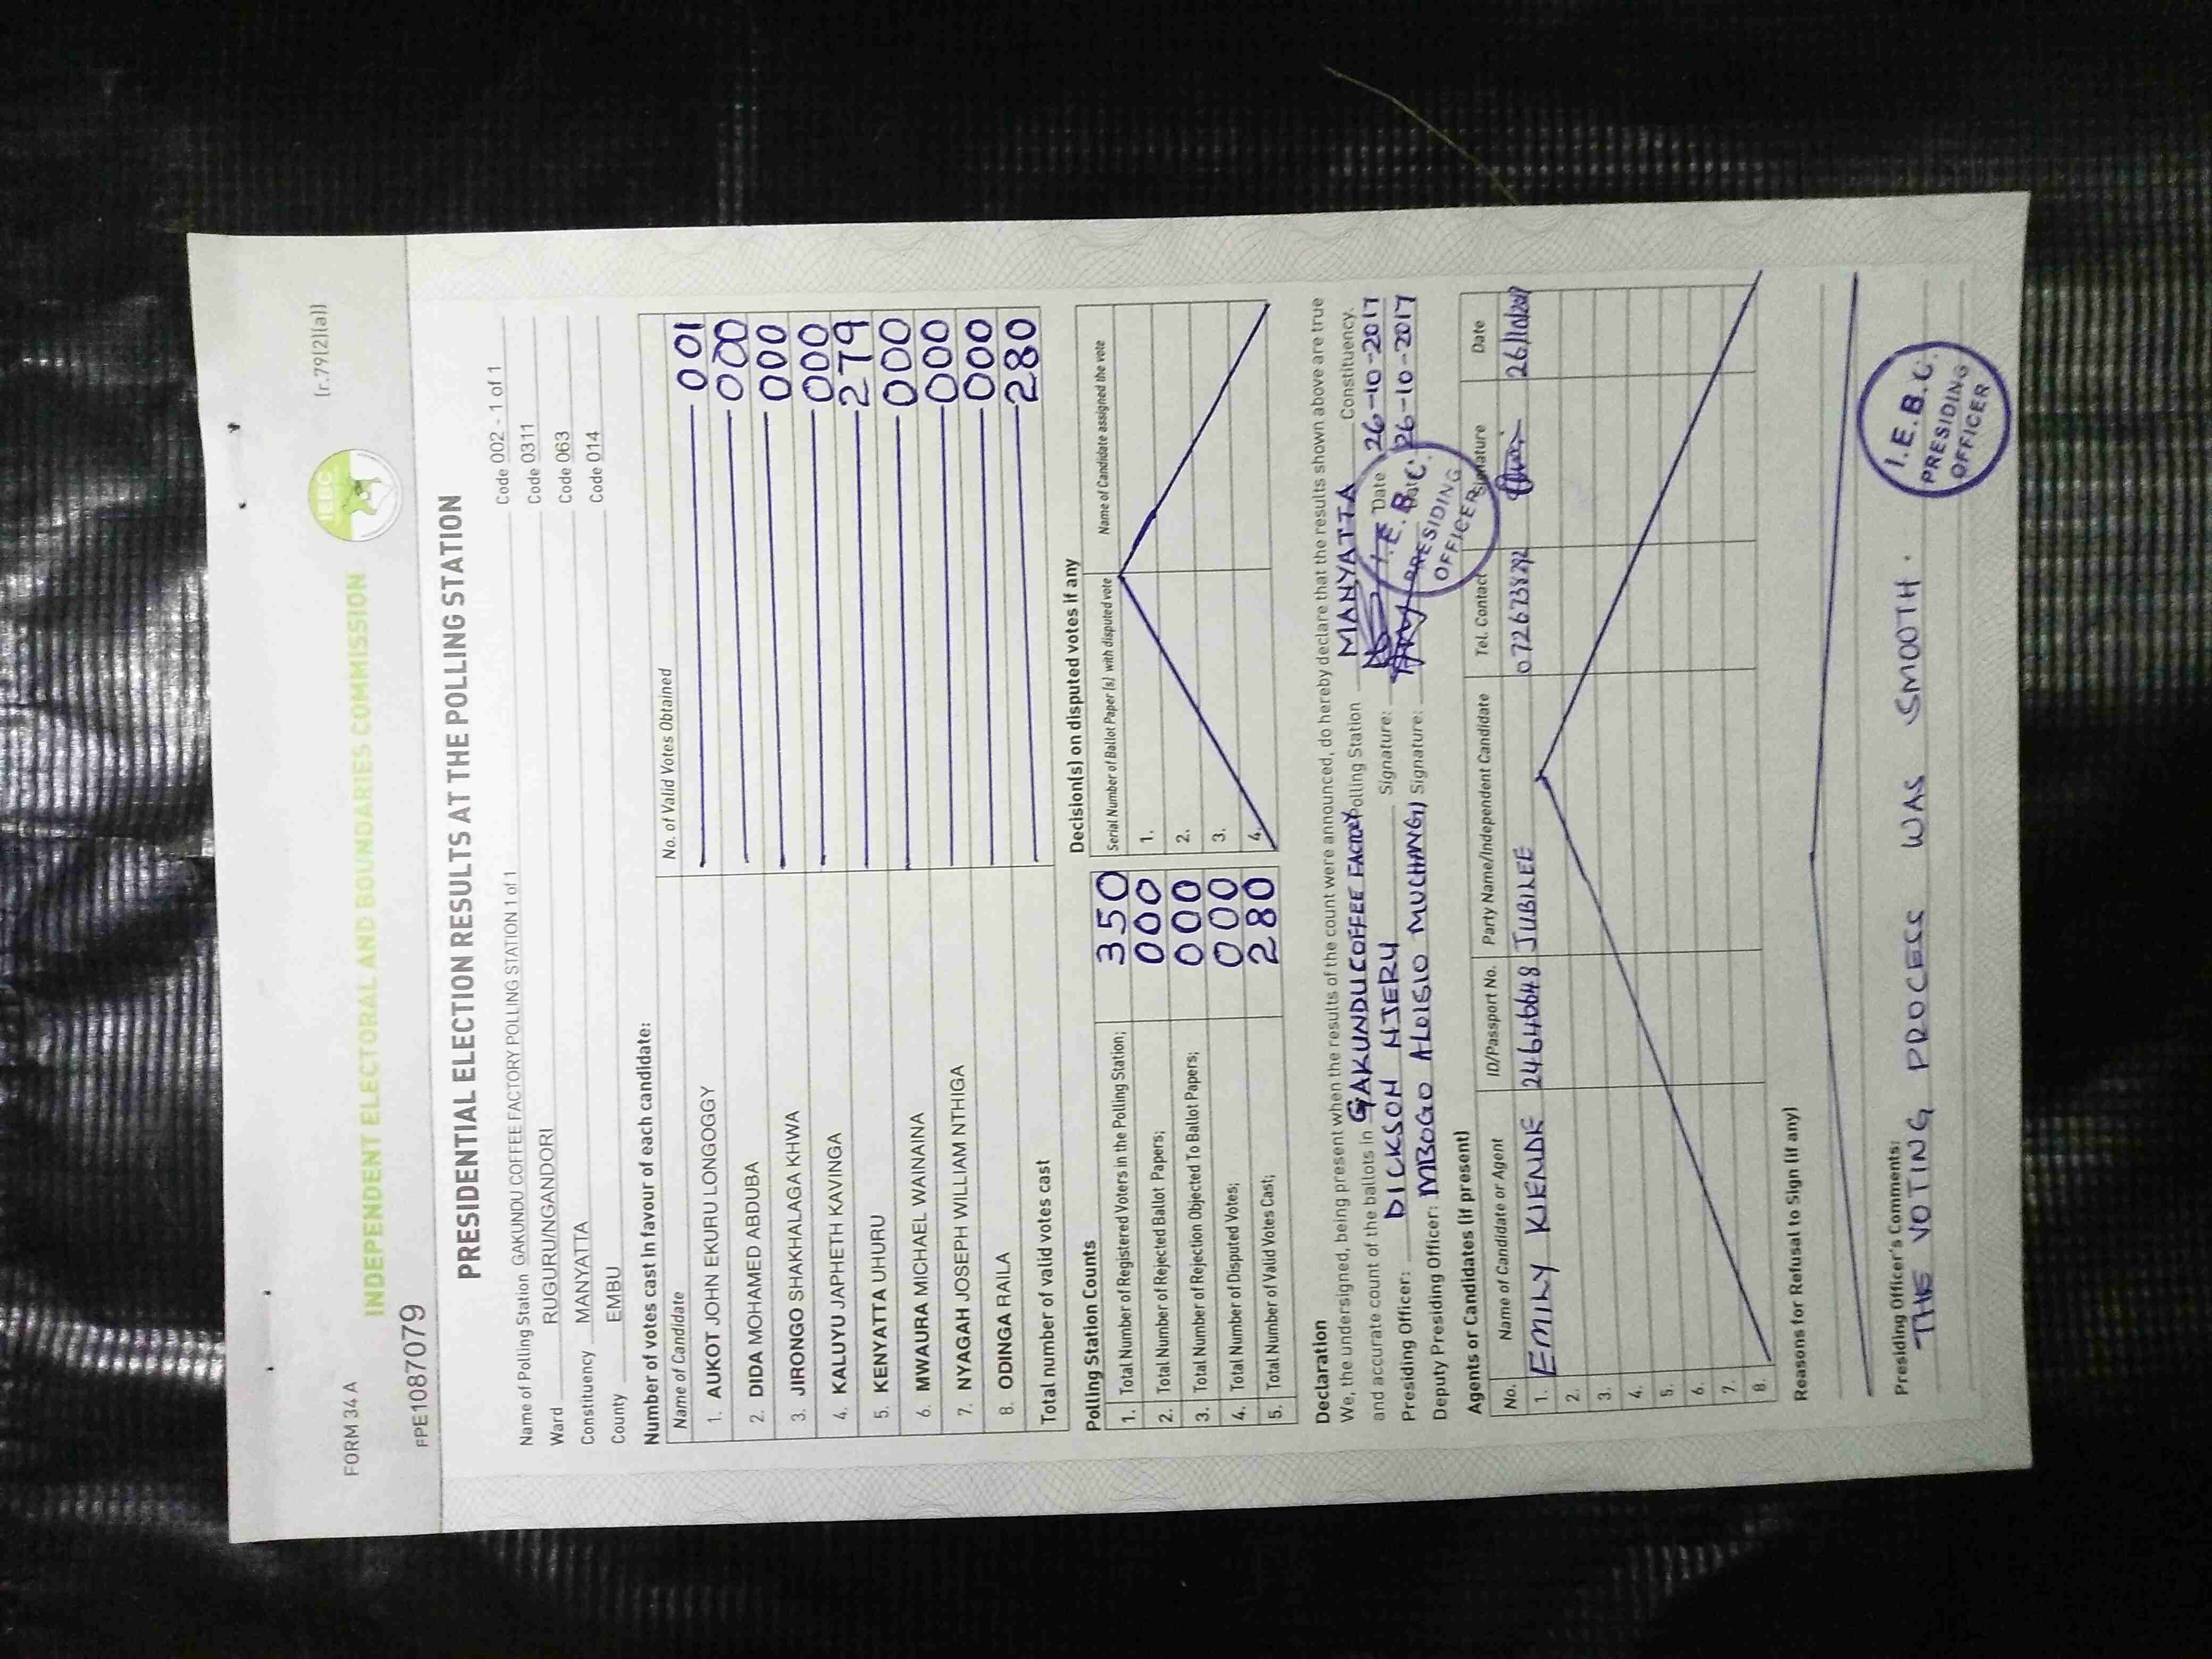 FORM 34 A
(r.79(2)(a))
IEBC
INDEPENDENT ELECTORAL AND BOUNDARIES COMMISSION
FPE1087079
PRESIDENTIAL ELECTION RESULTS AT THE POLLING STATION
Name of Polling Station GAKUNDU COFFEE FACTORY POLLING STATION 1 of 1 Code 002 - 1 of 1
Ward RUGURU/NGANDORI Code 0311
Constituency MANYATTA Code 063
County EMBU Code 014
Number of votes cast in favour of each candidate:
Name of Candidate No. of Valid Votes Obtained
1. AUKOT JOHN EKURU LONGOGGY 001
2. DIDA MOHAMED ABDUBA 000
3. JIRONGO SHAKHALAGA KHWA 000
4. KALUYU JAPHETH KAVINGA 000
5. KENYATTA UHURU 279
6. MWAURA MICHAEL WAINAINA 000
7. NYAGAH JOSEPH WILLIAM NTHIGA 000
8. ODINGA RAILA 000
Total number of valid votes cast 280
Polling Station Counts
1. Total Number of Registered Voters in the Polling Station; 350
2. Total Number of Rejected Ballot Papers; 000
3. Total Number of Rejection Objected To Ballot Papers; 000
4. Total Number of Disputed Votes; 000
5. Total Number of Valid Votes Cast; 280
Decision(s) on disputed votes if any
Serial Number of Ballot Paper (s) with disputed vote Name of Candidate assigned the vote
1.
2.
3.
4.
Declaration
We, the undersigned, being present when the results of the count were announced, do hereby declare that the results shown above are true
and accurate count of the ballots in GAKUNDU COFFEE FACTORY Polling Station MANYATTA Constituency.
Presiding Officer: DICKSON NJERU Signature: Date 26-10-2017
Deputy Presiding Officer: MBOGO ALOISIO MUCHANGI Signature: Date 26-10-2017
I.E.B.C.
PRESIDING
OFFICER
Agents or Candidates (if present)
No. Name of Candidate or Agent ID/Passport No. Party Name/Independent Candidate Tel. Contact Signature Date
1. EMILY KIENDE 24646648 JUBILEE 0726738292 26/10/2017
2.
3.
4.
5.
6.
7.
8.
Reasons for Refusal to Sign (if any)
Presiding Officer's Comments:
THE VOTING PROCESS WAS SMOOTH.
I.E.B.C.
PRESIDING
OFFICER